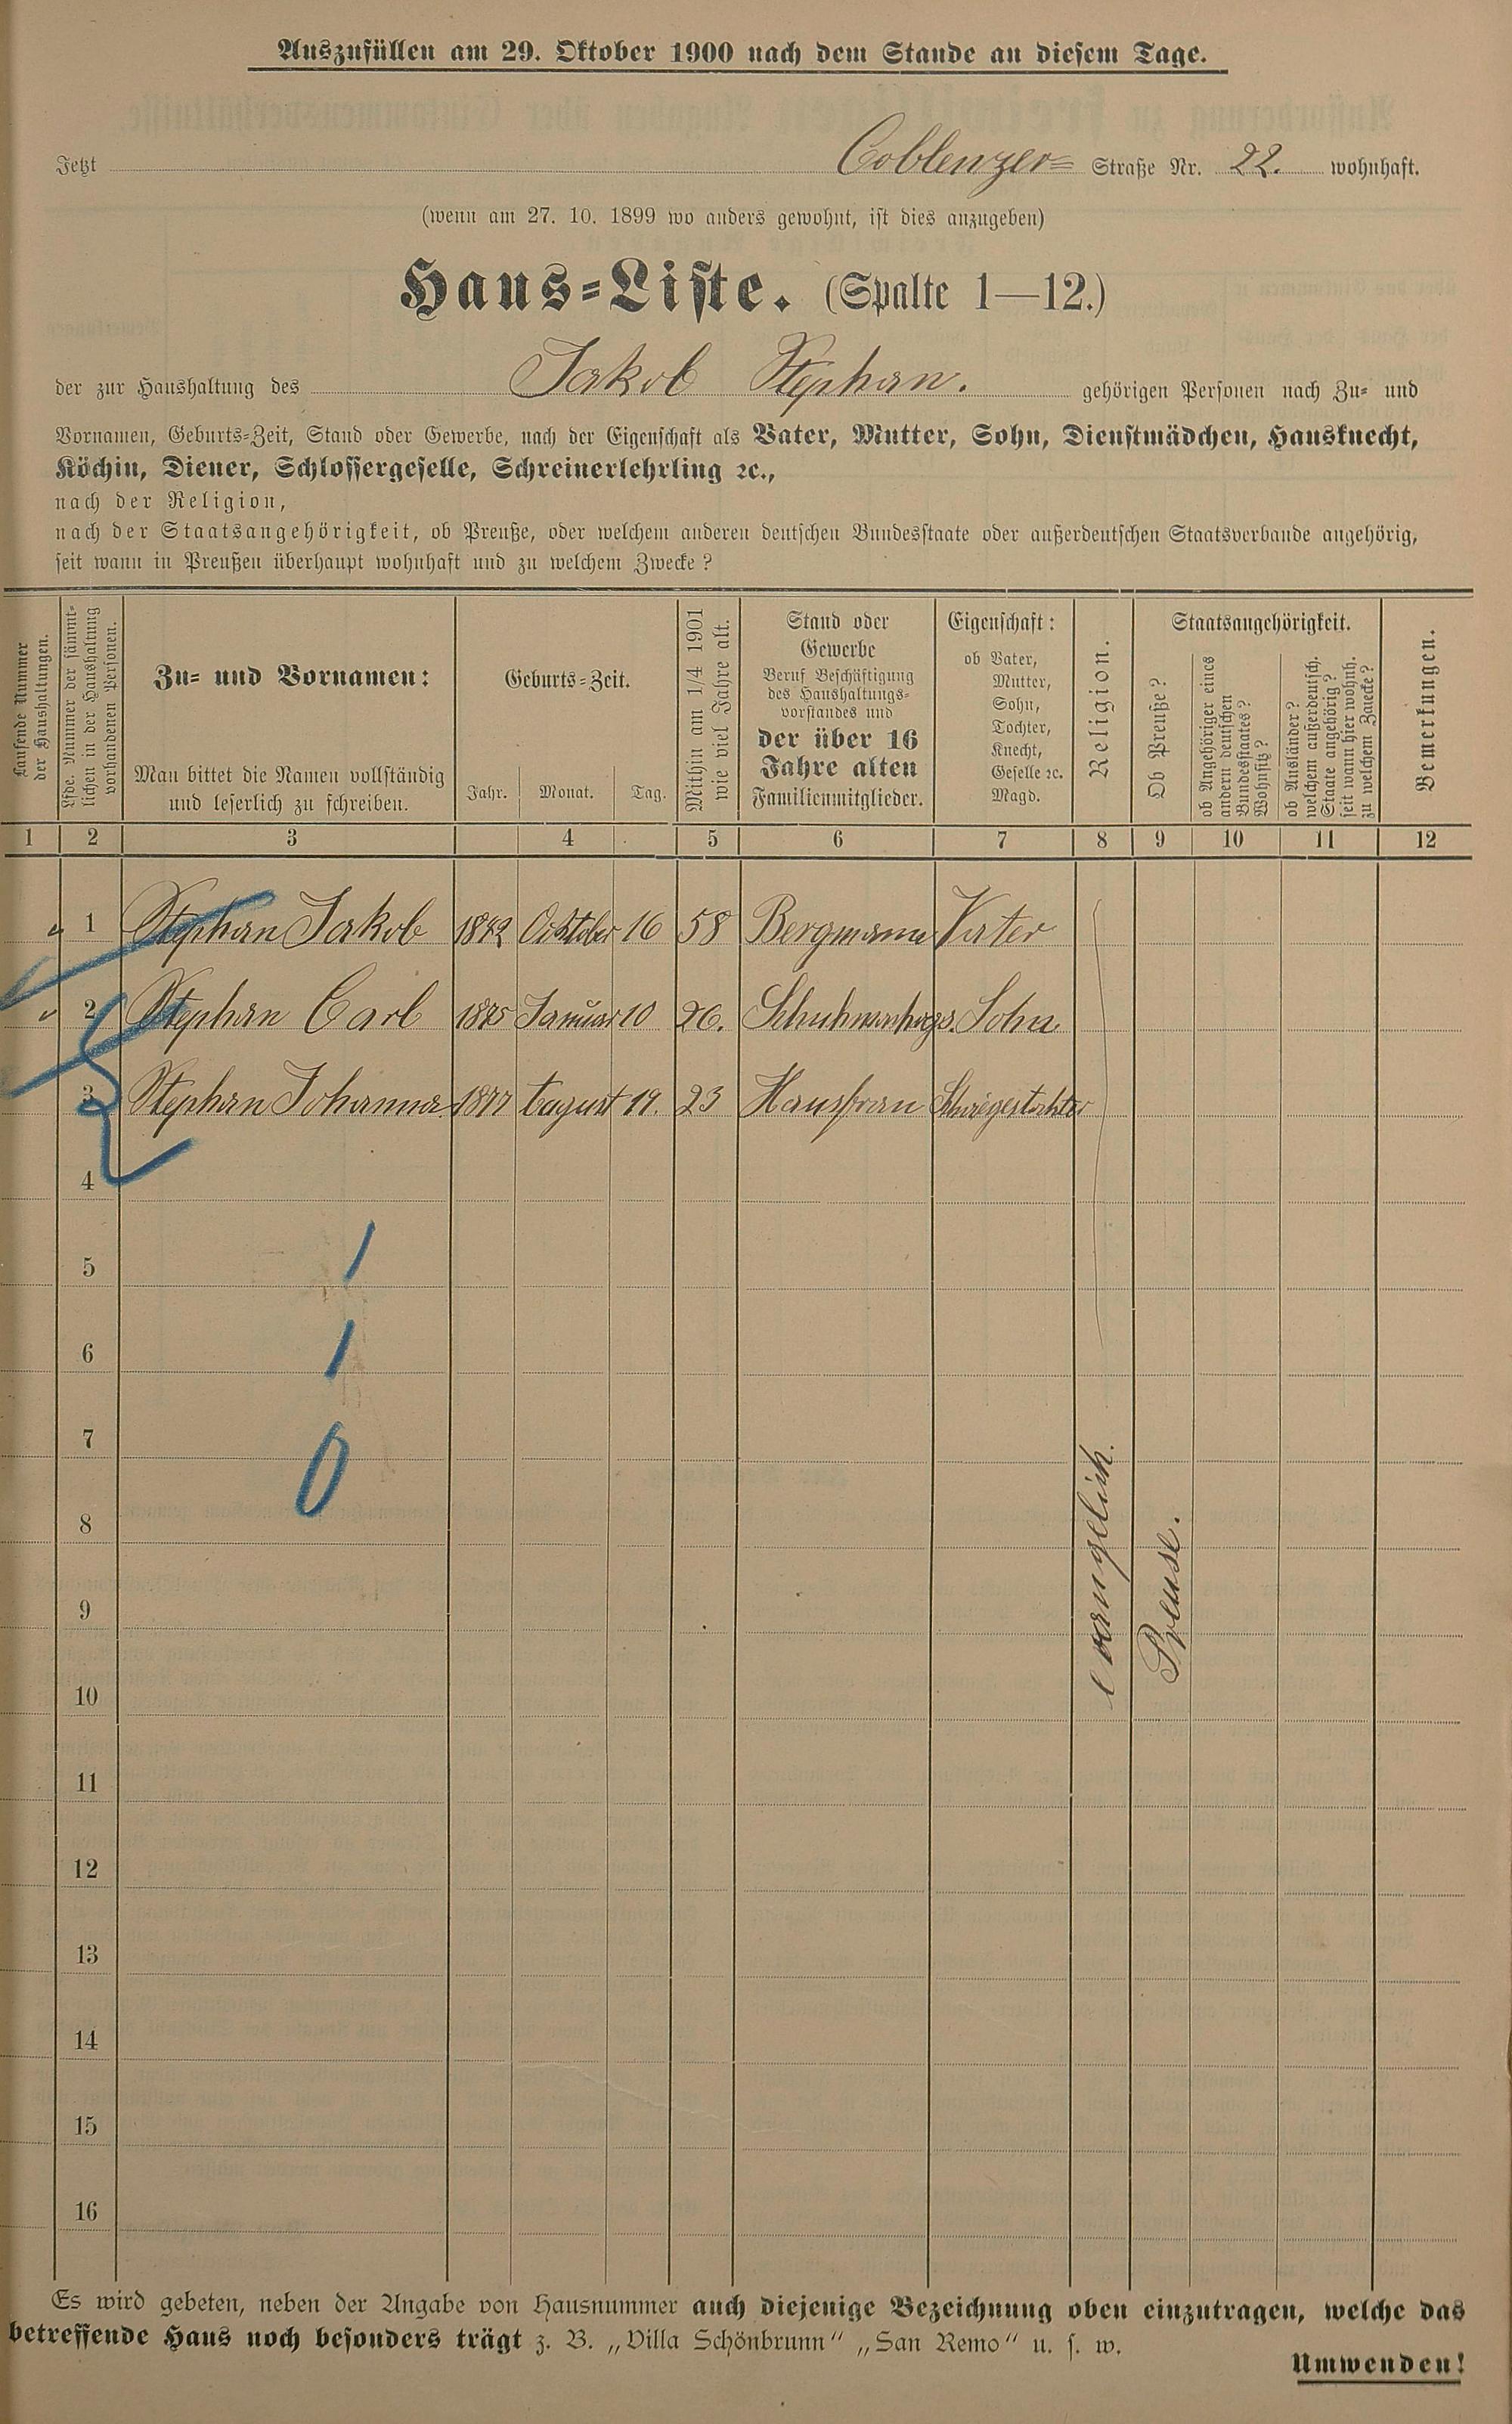 Auszufüllen am 29. Oktober 1900 nach dem Stande an diesem Tage.
Jetzt Coblenzer= Straße Nr. 22. wohnhaft.
(wenn am 27. 10. 1899 wo anders gewohnt, ist dies anzugeben)
Haus=Liste. (Spalte 1—12.)
der zur Haushaltung des Jakob Stephan. gehörigen Personen nach Zu= und
Vornamen, Geburts=Zeit, Stand oder Gewerbe, nach der Eigenschaft als Vater, Mutter, Sohn, Dienstmädchen, Hausknecht,
Köchin, Diener, Schlossergeselle, Schreinerlehrling ꝛc.,
nach der Religion,
nach der Staatsangehörigkeit, ob Preuße, oder welchem anderen deutschen Bundesstaate oder außerdeutschen Staatsverbande angehörig,
seit wann in Preußen überhaupt wohnhaft und zu welchem Zwecke?
Laufende Nummer
der Haushaltungen.
Lfde. Nummer der sämmt-
lichen in der Haushaltung
vorhandenen Personen.
Zu= und Vornamen:
Man bittet die Namen vollständig
und leserlich zu schreiben.
Geburts=Zeit.
Jahr. Monat. Tag.
Mithin am 1/4 1901
wie viel Jahre alt.
Stand oder
Gewerbe
Beruf Beschäftigung
des Haushaltungs=
vorstandes und
der über 16
Jahre alten
Familienmitglieder.
Eigenschaft:
ob Vater,
Mutter,
Sohn,
Tochter,
Knecht,
Geselle ꝛc.
Magd.
Religion.
Staatsangehörigkeit.
Ob Preuße?
ob Angehöriger eines
andern deutschen
Bundesstaates?
Wohnsitz?
ob Ausländer?
welchem außerdeutsch.
Staate angehörig?
seit wann hier wohnh.
zu welchem Zwecke?
Bemerkungen.
1 2 3 4 5 6 7 8 9 10 11 12
1 Stephan Jakob 1842 October 16 58 Bergmann Vater
2 Stephan Carl 1875 Januar 10 26. Sohn
3 Stephan Johanna 1877 August 19. 23 Hausfrau Schwiegertochter
4
5 1
6 1
7 0
8
9
10
evangelisch.
Preuse.
11
12
13
14
15
16
Es wird gebeten, neben der Angabe von Hausnummer auch diejenige Bezeichnung oben einzutragen, welche das
betreffende Haus noch besonders trägt z. B. „Villa Schönbrunn“ „San Remo“ u. s. w.
Umwenden!